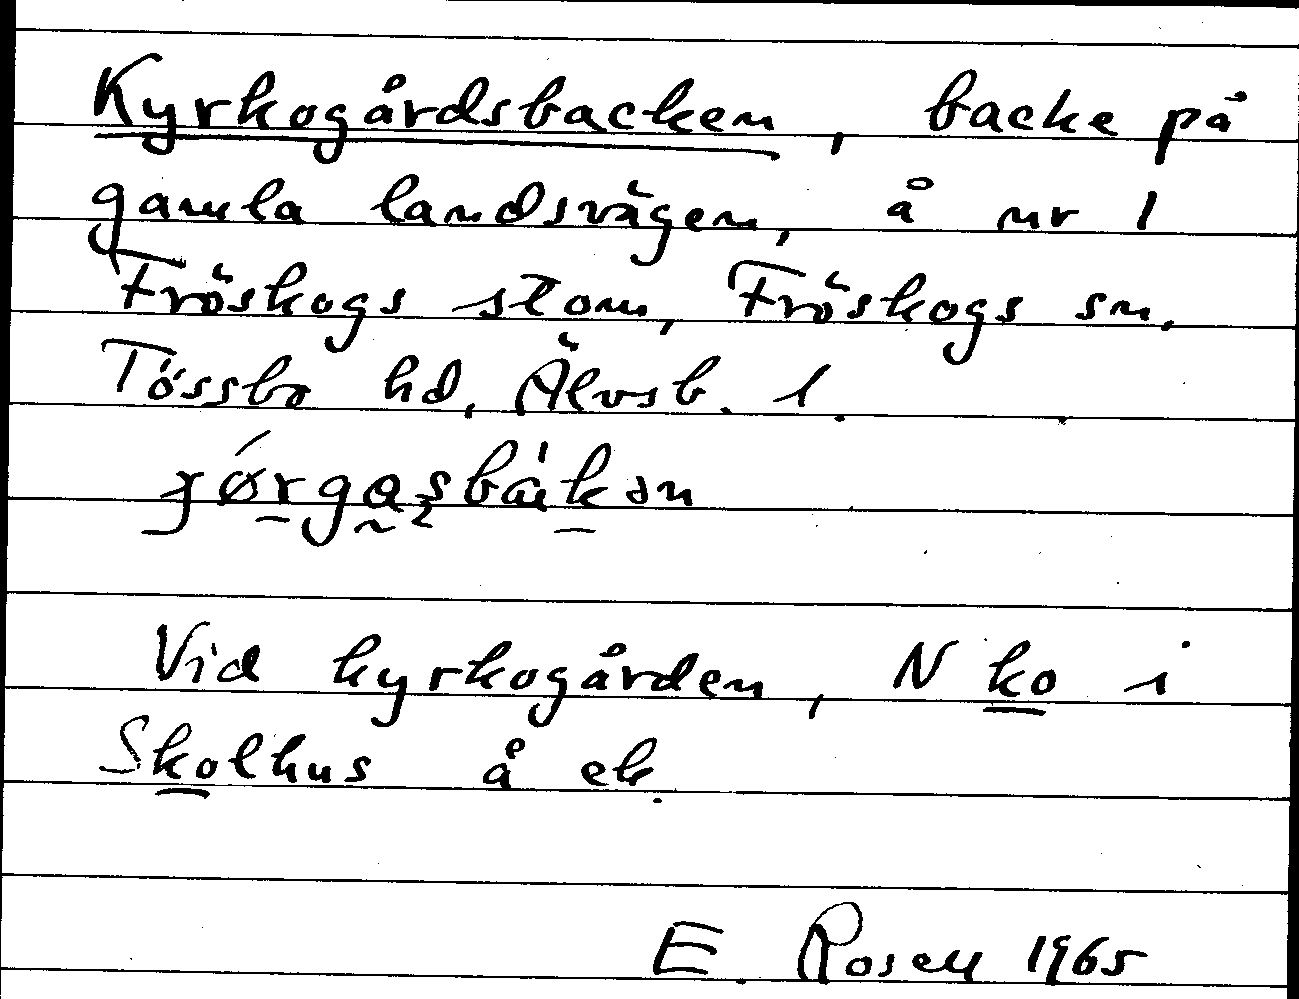 Kyrkogårdsbacken, backe på
gamla landsvägen, å nr 1
Fröskogs stom, Fröskogs sn,
Tössbo hd, Älvsb. l.
Vid kyrkogården, N ko i
Skolhus å ek.
E. Rosell 1965